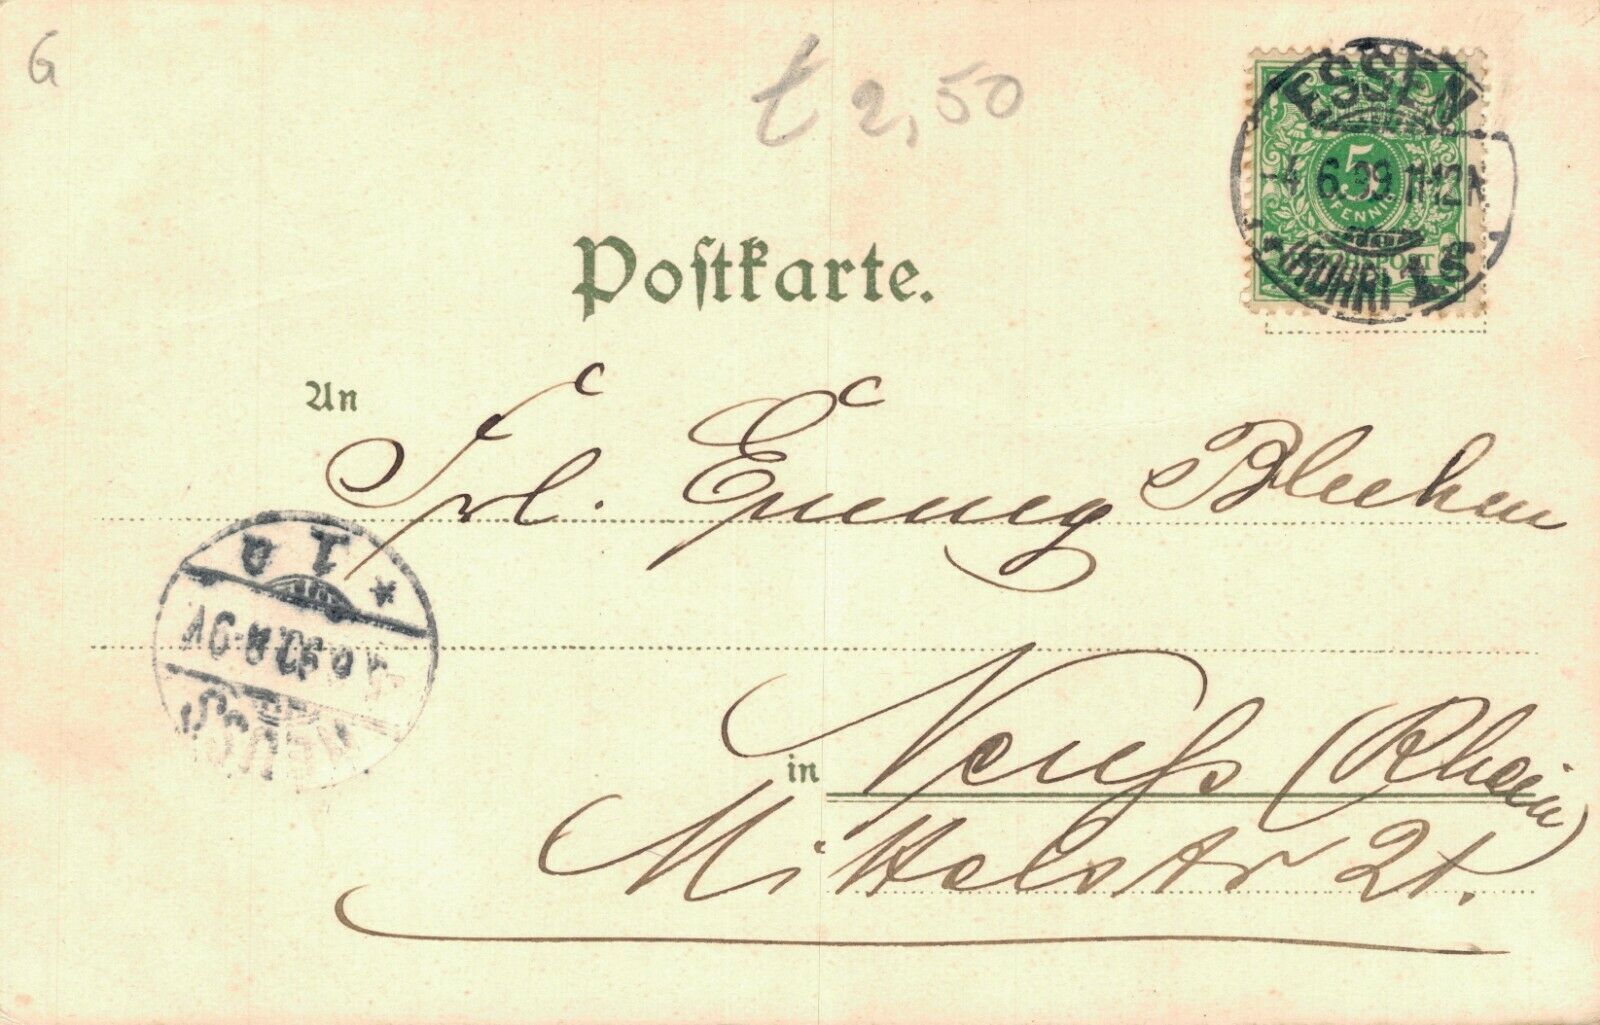 G
£ 2,50
ESSEN
-4.6.99.11-12N.
(RUHR) 1s
5
PFENNIG
REICHSPOST
Postkarte.
An
Frl. Blecken
* 1 a
NEUSS
in Neuß (Rhein)
Mittelstr 21.